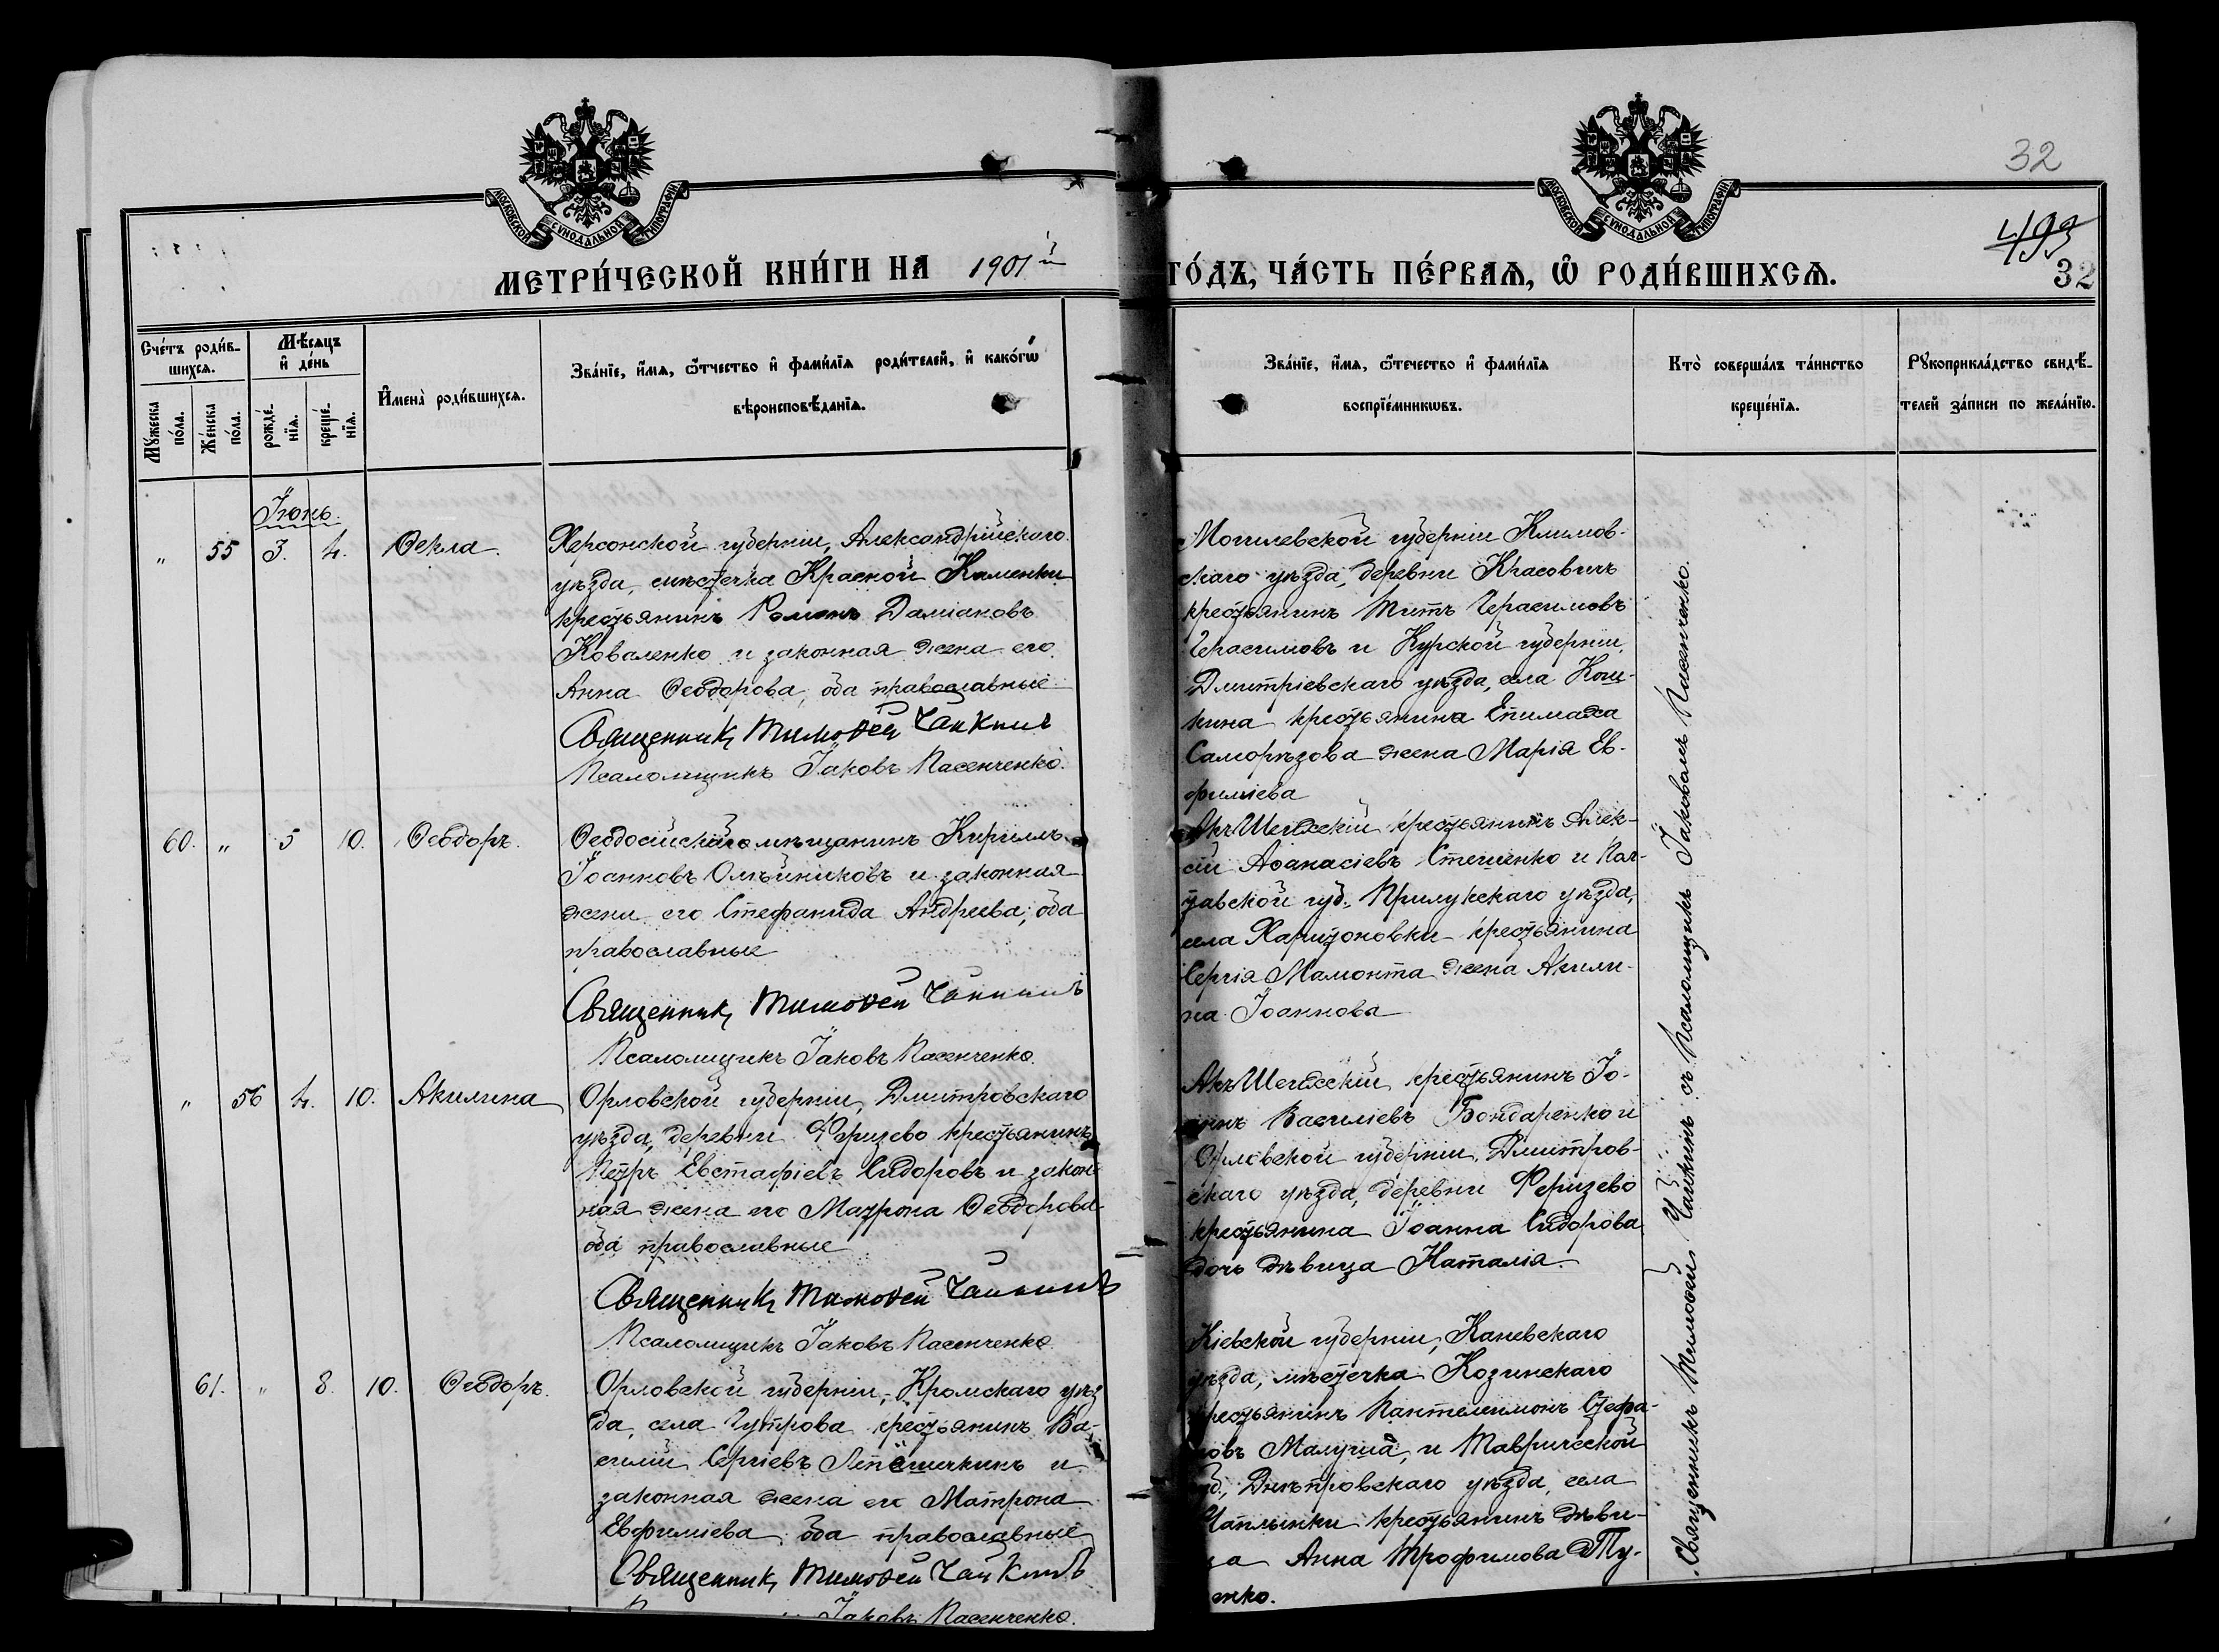 32
493
32
МОСКОВСКОЙ СУНОДАЛЬНОЙ ТИПОГРАФІИ
МОСКОВСКОЙ СУНОДАЛЬНОЙ ТИПОГРАФІИ
МЕТРИ́ЧЕСКОЙ КНИ́ГИ НА 1901й
ГО́ДЪ, ЧА́СТЬ ПЕ́РВАѦ, Ѡ РОДИ́ВШИХСѦ.
Сче́тъ роди́в-
шихсѧ.
Му́жеска по́ла.
Же́нска по́ла.
Мѣ́сѧцъ
и҆ де́нь
рожде́-
нїѧ.
креще́-
нїѧ.
И҆мена̀ роди́вшихсѧ.
Зва́нїе, и҆́мѧ, ѻ҆́тчество и҆ фами́лїѧ роди́телей, и҆ како́гѡ
вѣроисповѣ́данїѧ.
Зва́нїе, и҆́мѧ, ѻ҆́течество и҆ фами́лїѧ
воспрїе́мникѡвъ.
Кто̀ соверша́лъ та́инство
креще́нїѧ.
Рꙋкоприкла́дство свидѣ́-
телей за́писи по жела́нїю.
Іюнь.
„ 55 3. 4. Ѳекла.
Херсонской губерніи, Александрійскаго
уѣзда, мѣстечка Красной Каменки
крестьянинъ Романъ Даміановъ
Коваленко и законная жена его
Анна Ѳеодорова, оба православные
Священникъ Тимоѳей Чайкинъ
Псаломщикъ Іаковъ Пасенченко.
Могилевской губерніи Климов-
скаго уѣзда, деревни Красовичъ
крестьянинъ Титъ Герасимовъ
Герасимовъ и Курской губерніи,
Дмитріевскаго уѣзда, села Кош-
кина крестьянина Епимаха
Саморѣзова жена Марія Ев-
фиміева
60. „ 5 10. Ѳеодоръ.
Ѳеодосійскій мѣщанинъ Кириллъ
Іоанновъ Олѣйниковъ и законная
жена его Стефанида Андреева, оба
православные
Священникъ Тимоѳей Чайкинъ
Псаломщикъ Іаковъ Пасенченко.
Акъ-Шеихскій крестьянинъ Алек-
сій Аѳанасіевъ Стешенко и Пол-
тавской губ. Прилукскаго уѣзда,
села Харитоновки крестьянина
Сергія Мамонта жена Акили-
на Іоаннова
„ 56 4. 10. Акилина
Орловской губерніи, Дмитровскаго
уѣзда, деревни Феризево крестьянинъ
Петръ Евстафіевъ Сидоровъ и закон-
ная жена его Матрона Ѳеодорова
оба православные
Священникъ Тимоѳей Чайкинъ
Псаломщикъ Іаковъ Пасенченко.
Акъ-Шеихскій крестьянинъ Іо-
аннъ Василіевъ Бондаренко и
Орловской губерніи, Дмитров-
скаго уѣзда, деревни Феризево
крестьянина Іоанна Сидорова
дочь дѣвица Наталія.
61. „ 8. 10. Ѳеодоръ.
Орловской губерніи, Кромскаго уѣз
да, села Гутрова крестьянинъ Ва-
силій Сергіевъ Лепёшечкинъ и
законная жена его Матрона
Евфиміева, оба православные
Священникъ Тимоѳей Чайкинъ
Іаковъ Пасенченко.
Кіевской губерніи, Каневскаго
уѣзда, мѣстечка Козинскаго
крестьянинъ Пантелеимонъ Стефа-
новъ Малуша, и Таврической
губ., Днѣпровскаго уѣзда, села
Чаплынки крестьянинъ дѣви-
ца Анна Трофимова Ту-
енко.
Священникъ Тимоѳей Чайкинъ съ Псаломщикъ Іаковомъ Пасенченко.